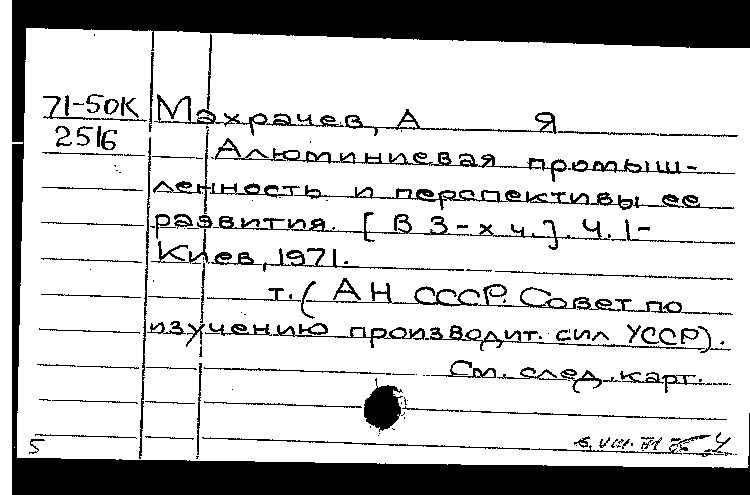 71-50К Махрачев, А Я
2516
Алюминиевая промыш-
ленность и перспективы ее
развития. [В 3-х ч.]. Ч. 1-
Киев, 1971.
т. (АН СССР. Совет по
изучению производит. сил УССР).
См. след. карт.
5 6.VIII.71